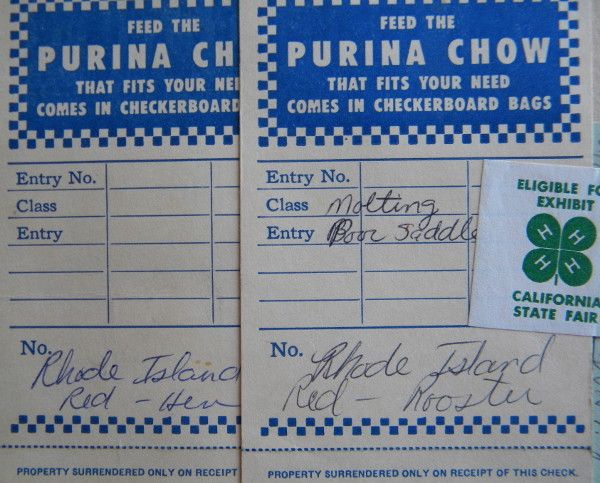 FEED THE
PURINA CH
THAT FITS YOUR NEE
COMES IN CHECKERBOARD
Entry No.
Class
Entry
No.
Rhode Island
Red - Hen
PROPERTY SURRENDERED ONLY ON RECEIPT
FEED THE
PURINA CHOW
THAT FITS YOUR NEED
COMES IN CHECKERBOARD BAGS
Entry No.
Class Molting
Entry Poor Saddle
No. Rhode Island
Red - Rooster
PROPERTY SURRENDERED ONLY ON RECEIPT OF THIS CHECK.
ELIGIBLE FO
EXHIBIT
H H
H H
CALIFORNIA
STATE FAIR